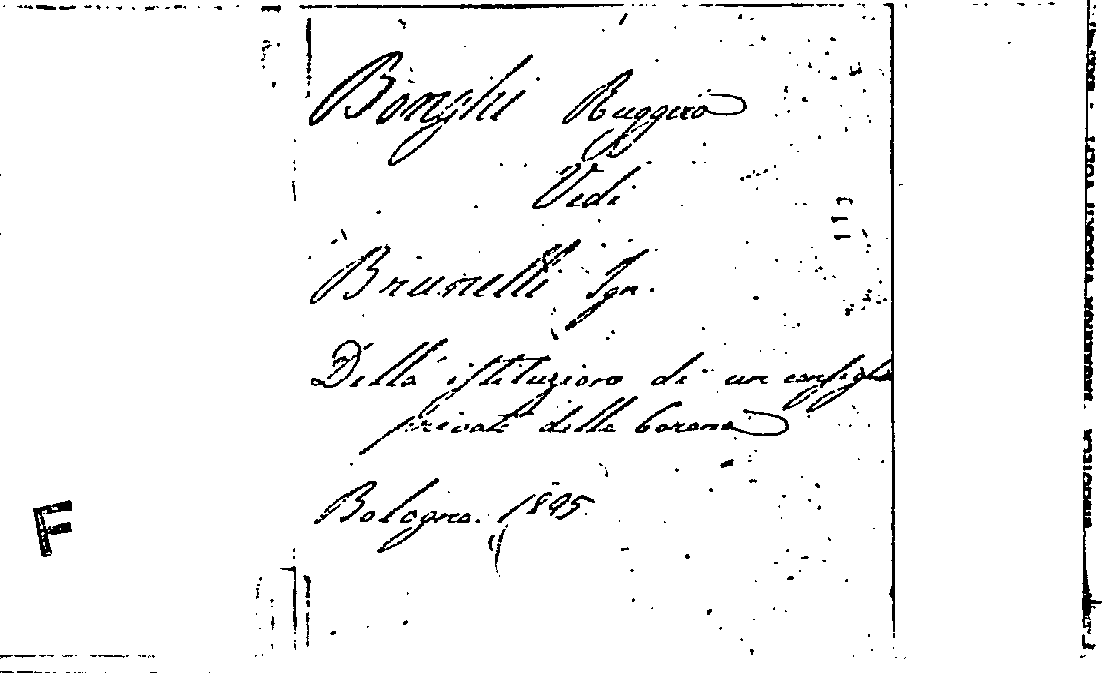 Bonghi Ruggero
Vedi
Brunelli Ign.
Della istituzione di un consiglio
privato della Corona
Bologna. 1895
F
BIBLIOTECA